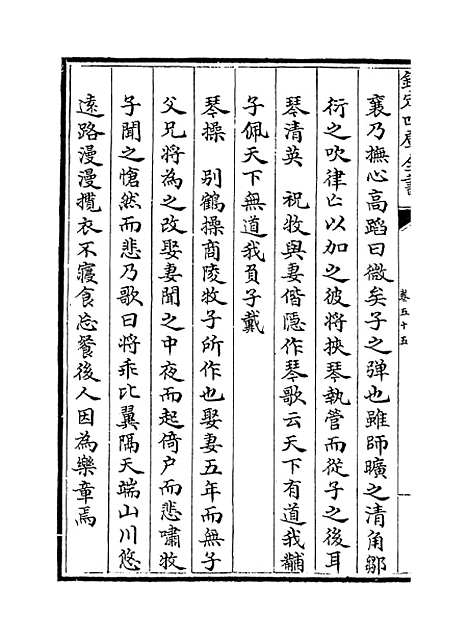 欽定四庫全書
卷五十五
襄乃撫心高蹈曰微矣子之彈也雖師曠之清角鄒
衍之吹律亡以加之彼將挾琴執管而從子之後耳
琴清英　祝牧與妻偕隱作琴歌云天下有道我黼
子佩天下無道我負子戴
琴操　別鶴操商陵牧子所作也娶妻五年而無子
父兄將為之改娶妻聞之中夜而起倚户而悲嘯牧
子聞之愴然而悲乃歌曰將乖比翼隔天端山川悠
遠路漫漫攬衣不寢食忘餐後人因為樂章焉